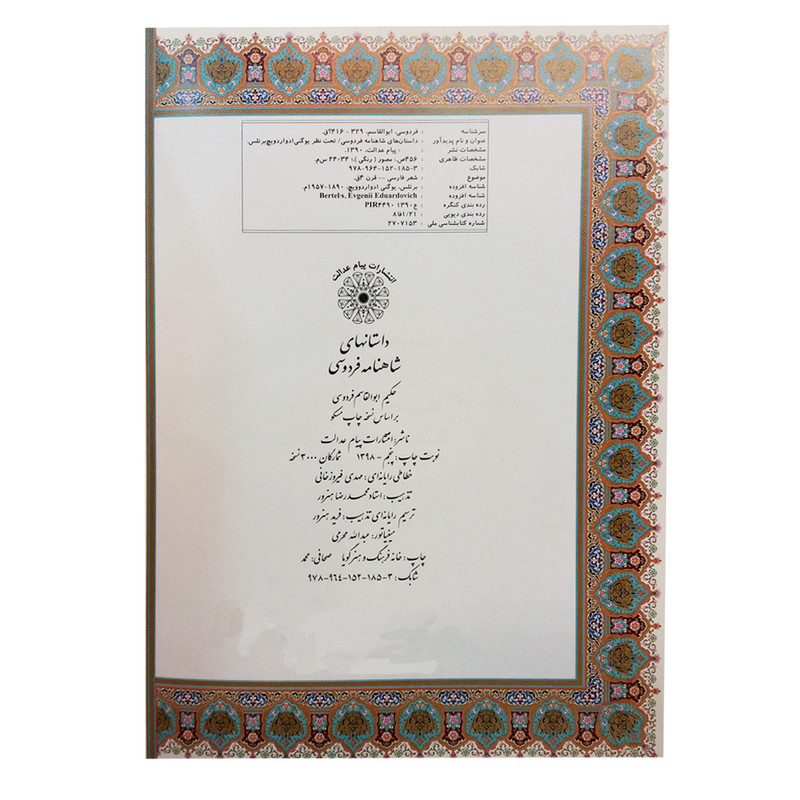 سرشناسه : فردوسی، ابوالقاسم، ۳۲۹ - ۴۱۶؟ق.
عنوان و نام پدیدآور : داستان‌های شاهنامه فردوسی/ تحت نظر یوگنی ادواردویچ برتلس.
مشخصات نشر : پیام عدالت، ۱۳۹۰.
مشخصات ظاهری : ۴۵۶ص.: مصور (رنگی).؛ ۲۴×۳۴ س‌م.
شابک : ۹۷۸-۹۶۴-۱۵۲-۱۸۵-۳
موضوع : شعر فارسی -- قرن ۴ق.
شناسه افزوده : برتلس، یوگنی ادواردوویچ، ۱۸۹۰-۱۹۵۷م.
شناسه افزوده : Bertel,s, Evgenii Eduardovich
رده بندی کنگره : PIR۴۴۹۰ ۱۳۹۰ ع
رده بندی دیویی : ۸فا۱/۲۱
شماره کتابشناسی ملی : ۲۷۰۷۱۵۳
انتشارات پیام عدالت
داستانهای
شاهنامه فردوسی
حکیم ابوالقاسم فردوسی
بر اساس نسخه چاپ مسکو
ناشر: انتشارات پیام عدالت
نوبت چاپ: پنجم - ۱۳۹۸ شمارگان ۳۰۰۰ نسخه
خطاطی رایانه‌ای: مهدی فیروزخانی
تذهیب: استاد محمدرضا هنرور
ترسیم رایانه‌ای تذهیب: فرید هنرور
مینیاتور: عبدالله محرمی
چاپ: خانه فرهنگ و هنر گویا صحافی: محمد
شابک: ۳-۱۸۵-۱۵۲-۹۶۴-۹۷۸